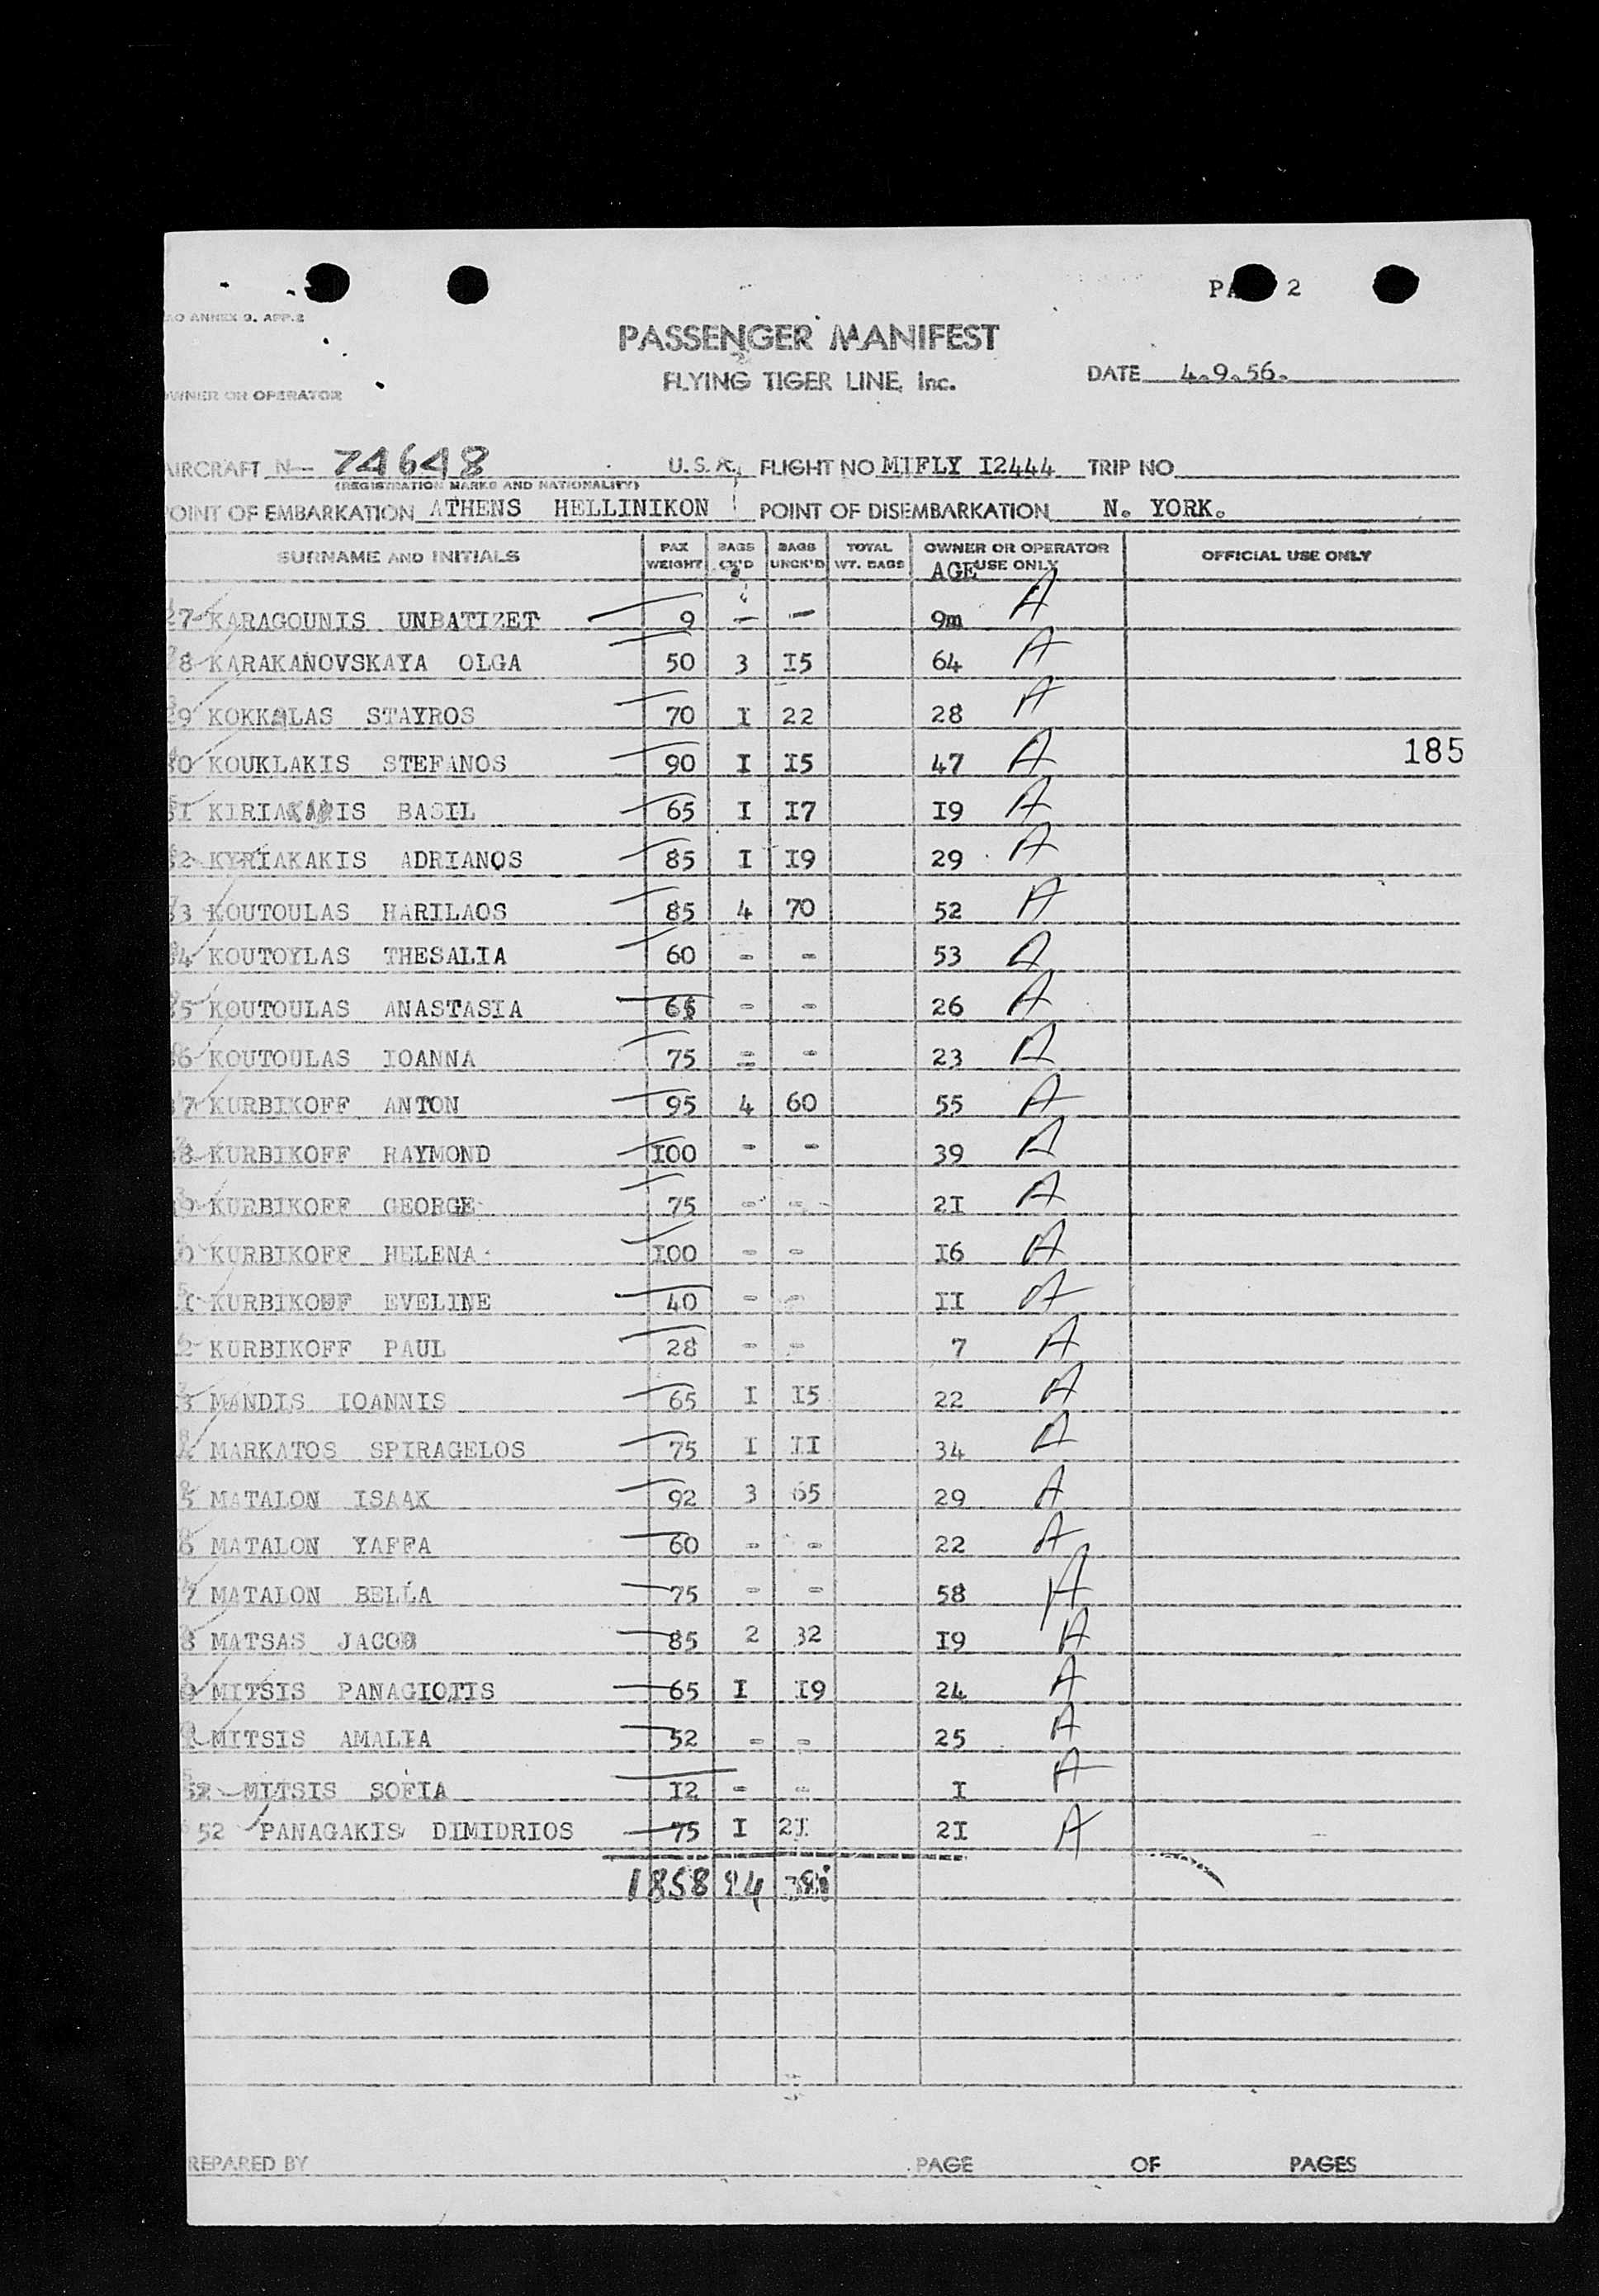 PA 2
AO ANNEX 9. APP.2
PASSENGER MANIFEST
FLYING TIGER LINE, Inc.
DATE 4.9.56.
OWNER OR OPERATOR
AIRCRAFT N— 74648 U.S.A. FLIGHT NO MIFLY I2444 TRIP NO
(REGISTRATION MARKS AND NATIONALITY)
POINT OF EMBARKATION ATHENS HELLINIKON POINT OF DISEMBARKATION N. YORK.
SURNAME AND INITIALS PAX WEIGHT BAGS CK'D BAGS UNCK'D TOTAL WT. BAGS OWNER OR OPERATOR USE ONLY OFFICIAL USE ONLY
AGE
27 KARAGOUNIS UNBATIZET 9 — — 9m A
28 KARAKANOVSKAYA OLGA 50 3 I5 64 A
29 KOKKALAS STAYROS 70 I 22 28 A
30 KOUKLAKIS STEFANOS 90 I I5 47 A 185
31 BASIL 65 I I7 I9 A
32 KYRIAKAKIS ADRIANOS 85 I I9 29 A
33 KOUTOULAS HARILAOS 85 4 70 52 A
34 KOUTOYLAS THESALIA 60 - - 53 A
35 KOUTOULAS ANASTASIA - - 26 A
36 KOUTOULAS IOANNA 75 - - 23 A
37 KURBIKOFF ANTON 95 4 60 55 A
38 KURBIKOFF RAYMOND I00 - - 39 A
39 KURBIKOFF GEORGE 75 - - 2I A
0 KURBIKOFF HELENA I00 - - I6 A
1 KURBIKOFF EVELINE 40 - - II A
2 KURBIKOFF PAUL 28 - - 7 A
3 MANDIS IOANNIS 65 I I5 22 A
4 MARKATOS SPIRAGELOS 75 I II 34 A
5 MATALON ISAAK 92 3 65 29 A
6 MATALON YAFFA 60 - - 22 A
7 MATALON BELLA 75 - - 58 A
8 MATSAS JACOB 85 2 32 I9 A
9 MITSIS PANAGIOTIS 65 I I9 24 A
MITSIS AMALIA 52 - - 25 A
MITSIS SOFIA I2 - - I A
52 PANAGAKIS DIMIDRIOS 75 I 2I 2I A
1858 24
PREPARED BY PAGE OF PAGES